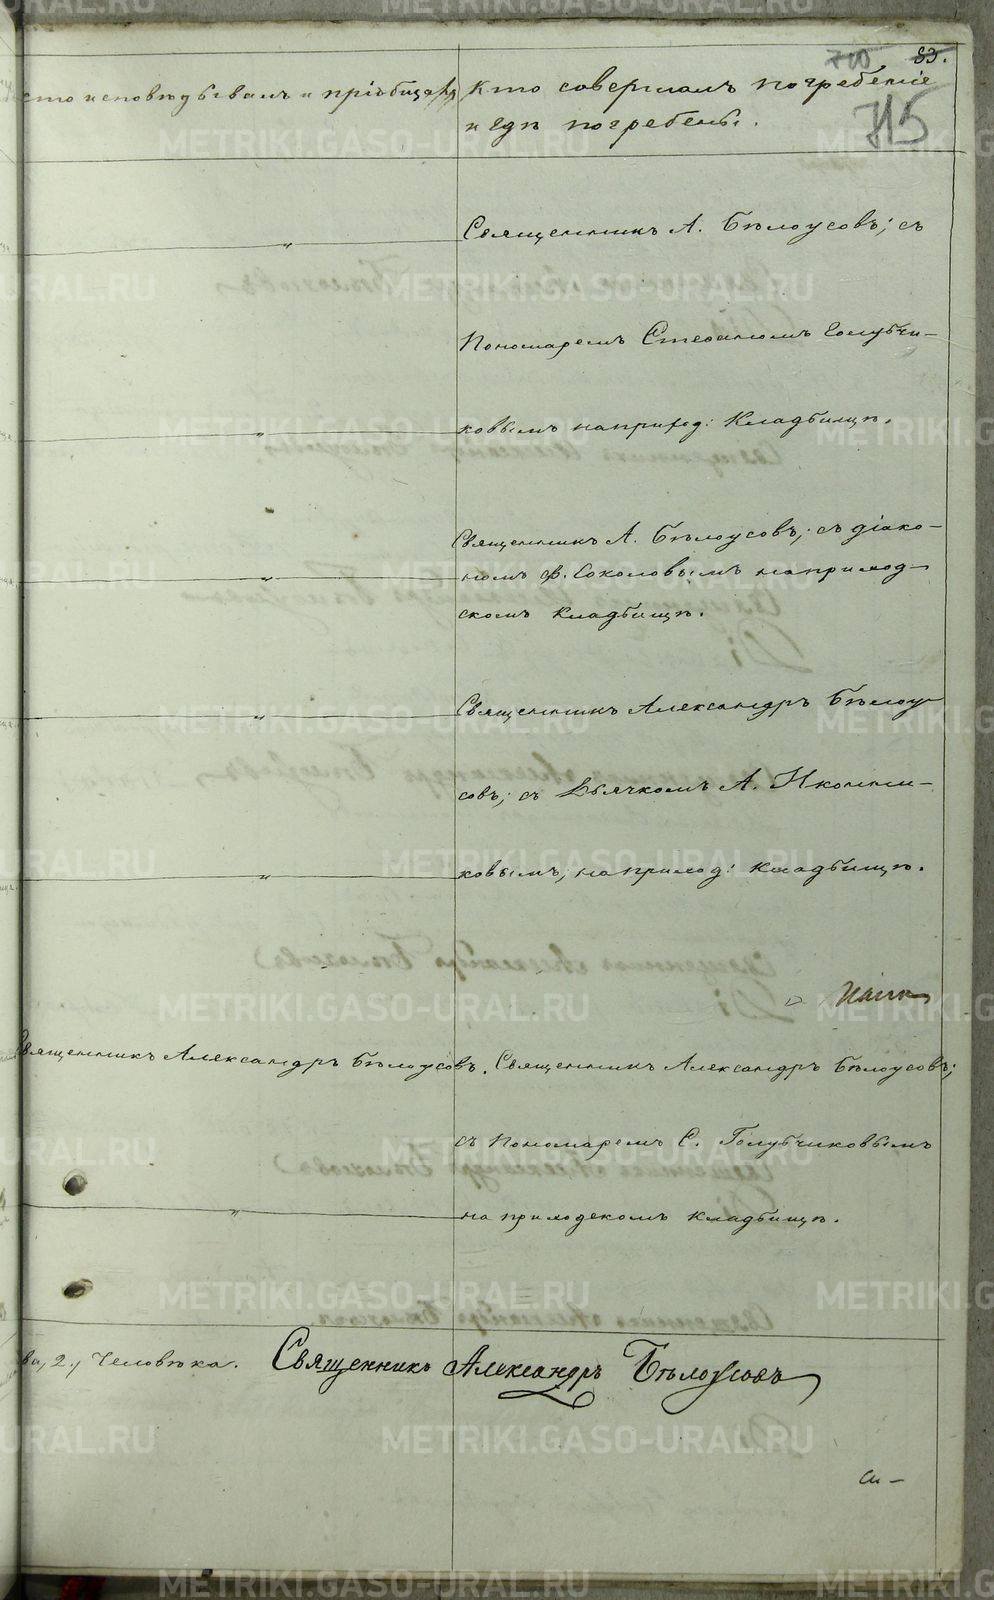 83.
715
Кто исповѣдывалъ и пріобщалъ
Кто совершалъ погребеніе
и гдѣ погребены.
Священникъ А. Бѣлоусовъ; съ
Пономаремъ Стефаномъ Голубчи-
ковымъ на приход: Кладбищѣ.
Священникъ А. Бѣлоусовъ; съ діако-
номъ Ф. Соколовымъ на приход-
скомъ Кладбищѣ.
Священникъ Александръ Бѣлоу-
совъ; съ Дьячкомъ А. Иконни-
ковымъ; на приход: Кладбищѣ.
Священникъ Александръ Бѣлоусовъ.
Священникъ Александръ Бѣлоусовъ;
съ Пономаремъ С. Голубчиковымъ
на приходскомъ Кладбищѣ.
ва, 2., Человѣка. Священникъ Александръ Бѣлоусовъ
Си-
METRIKI.GASO-URAL.RU